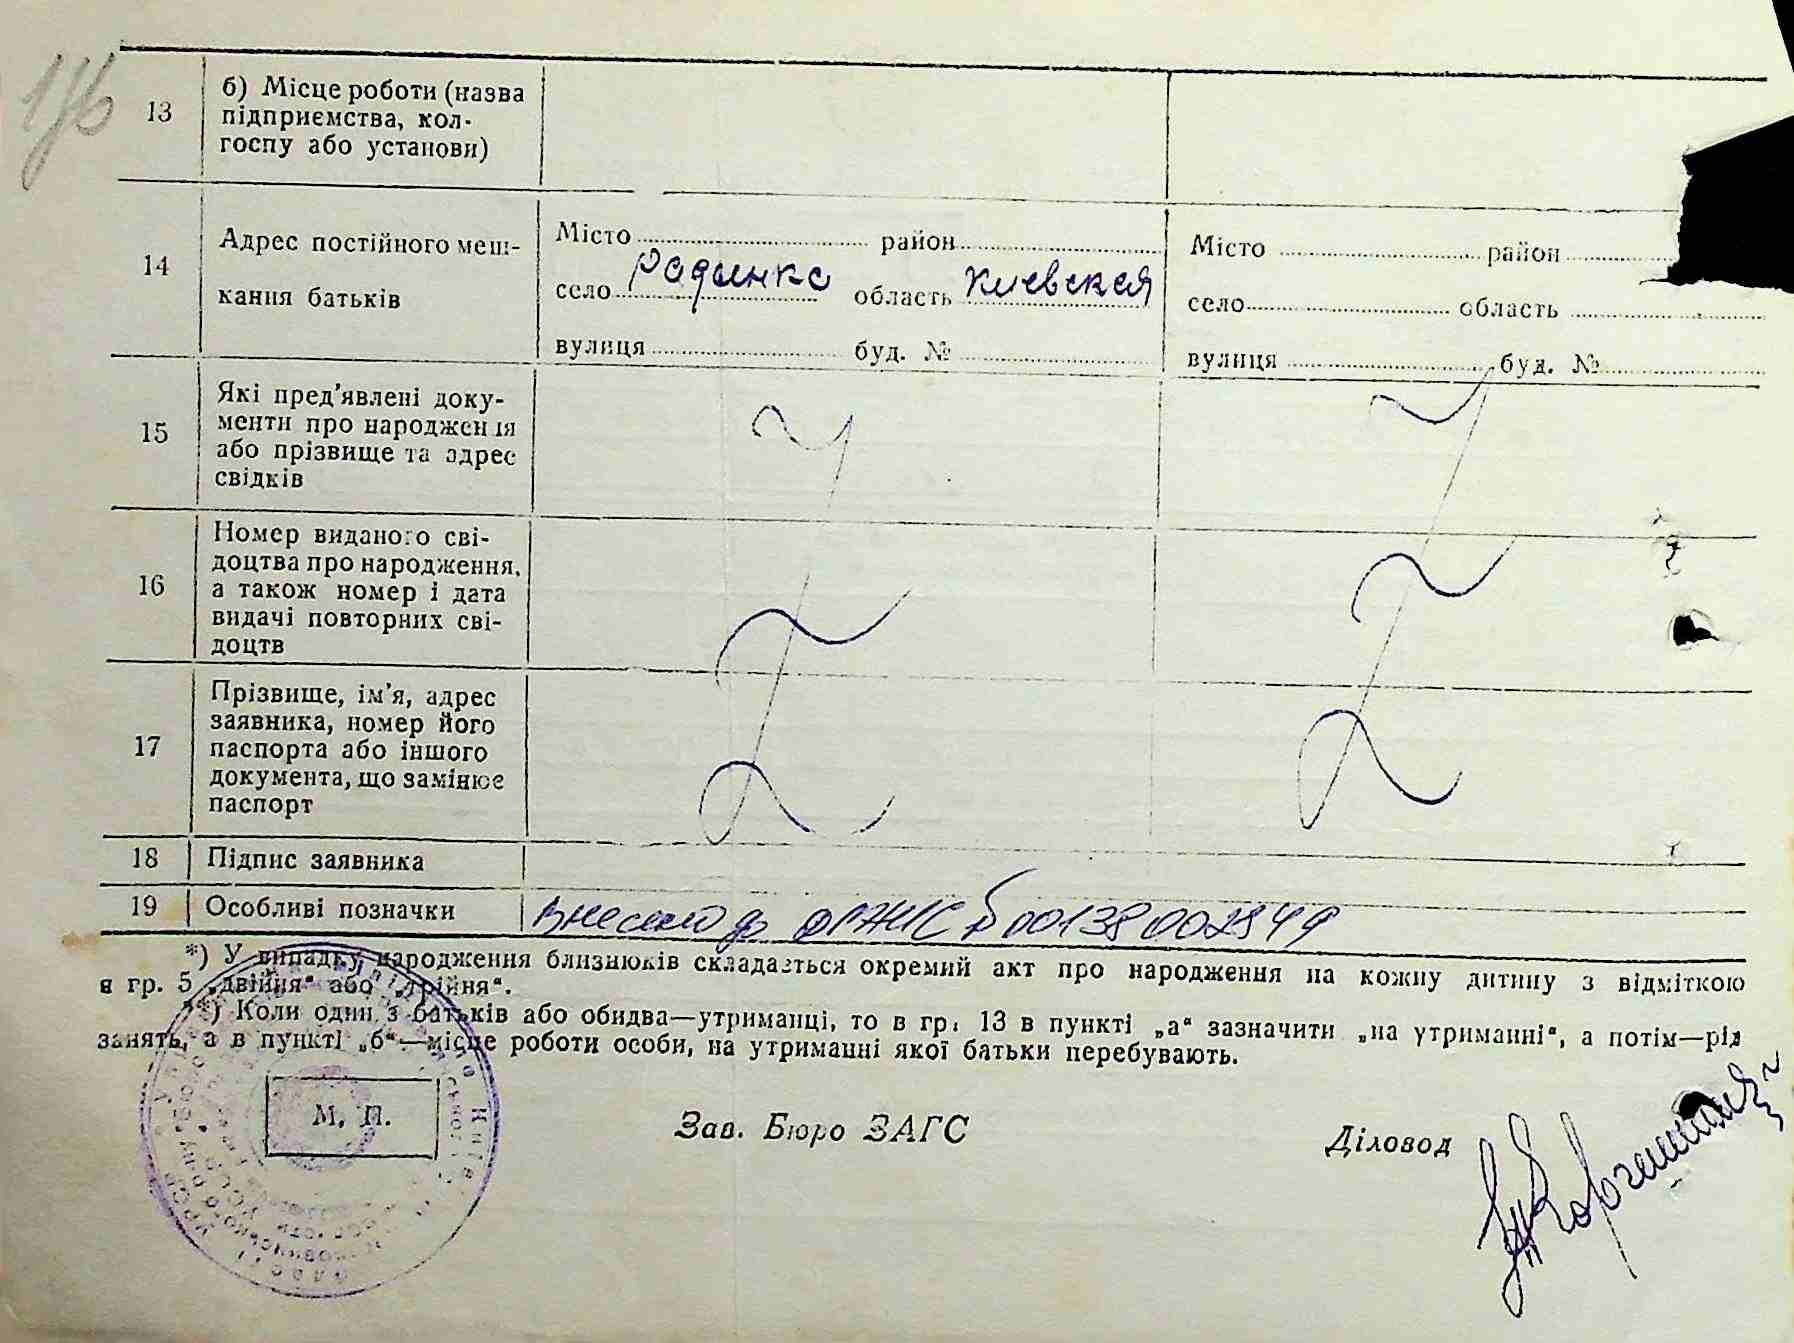 13
б) Місце роботи (назва
підприємства, кол-
госпу або установи)
14
Адрес постійного меш-
кання батьків
Місто район
село Радинка область Киевская
вулиця буд. №
Місто район
село область
вулиця буд. №
15
Які пред'явлені доку-
менти про народження
або прізвище та адрес
свідків
16
Номер виданого сві-
доцтва про народження,
а також номер і дата
видачі повторних сві-
доцтв
17
Прізвище, ім'я, адрес
заявника, номер його
паспорта або іншого
документа, що замінює
паспорт
18 Підпис заявника
19 Особливі позначки
Внесено до 00138002849
*) У випадку народження близнюків складається окремий акт про народження на кожну дитину з відміткою
в гр. 5 „двійня" або „трійня".
**) Коли один з батьків або обидва—утриманці, то в гр. 13 в пункті „а" зазначити „на утриманні", а потім—рід
занять, а в пункті „б"—місце роботи особи, на утриманні якої батьки перебувають.
М. П.
Зав. Бюро ЗАГС
Діловод